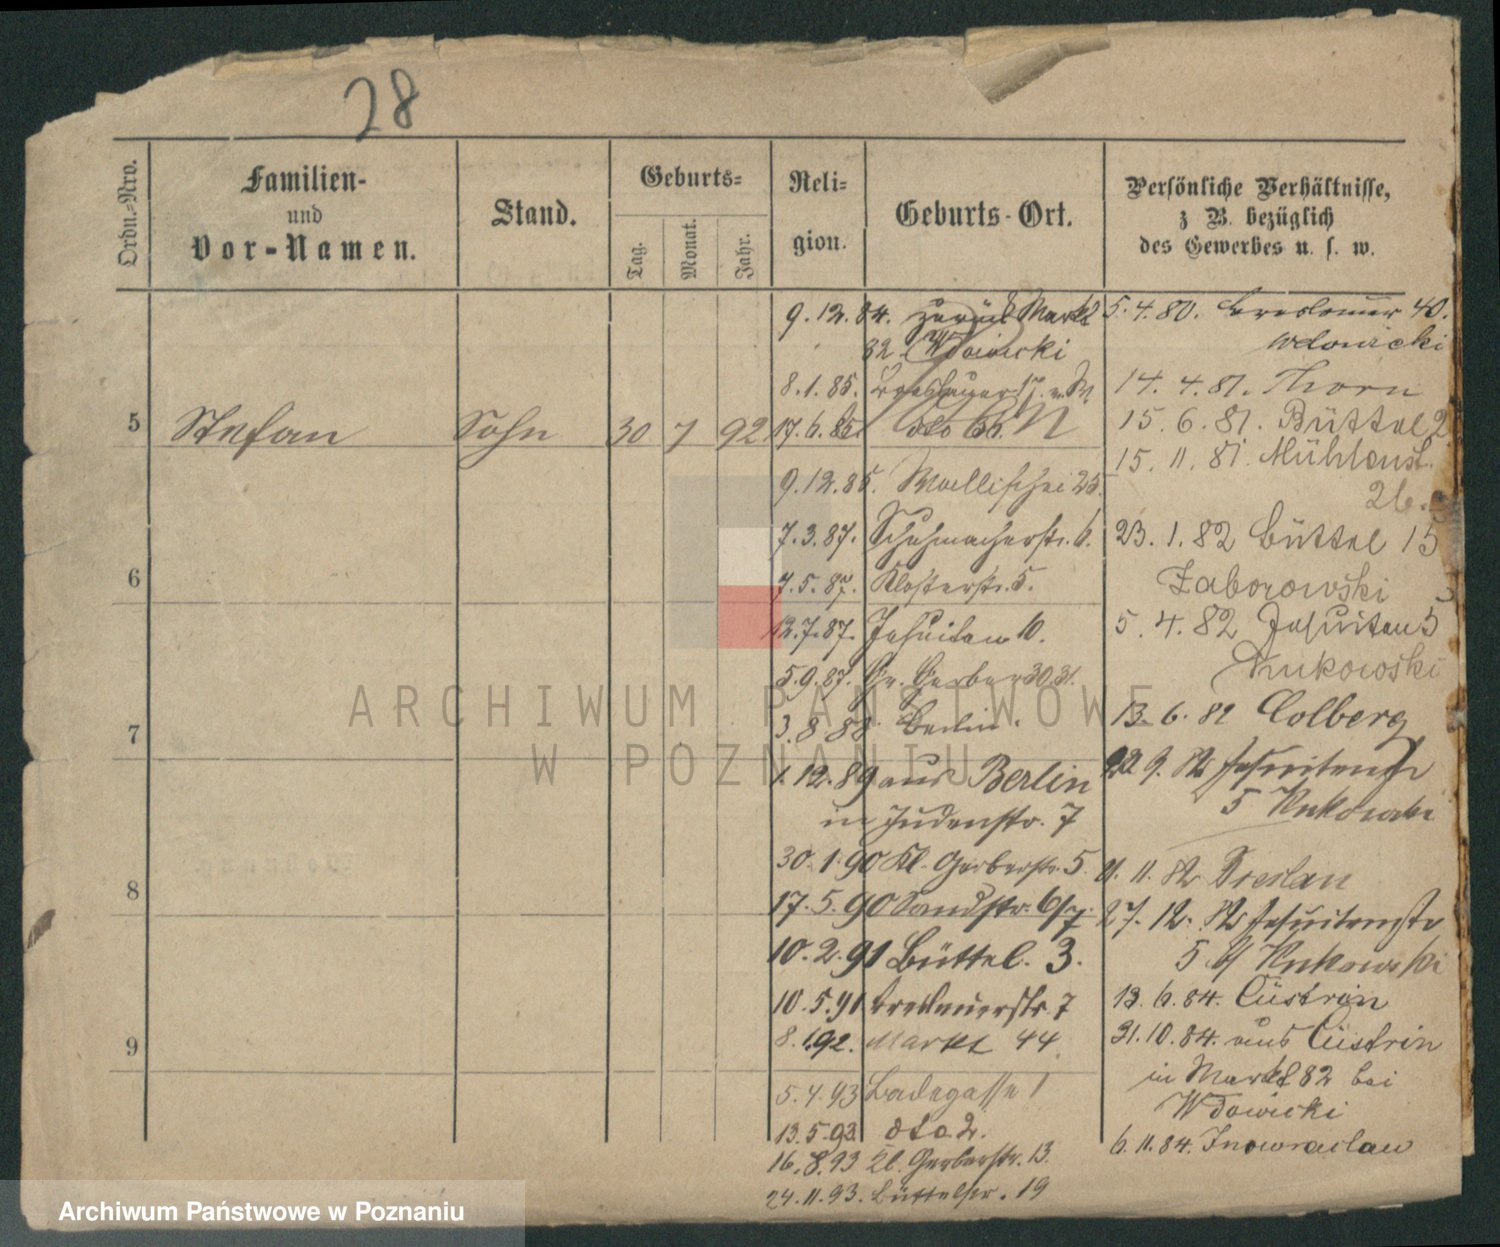 28
Ordn.-Nro.
Familien-
und
Vor-Namen.
Stand.
Geburts-
Tag.
Monat.
Jahr.
Reli-
gion.
Geburts-Ort.
Persönliche Verhältnisse,
z B. bezüglich
des Gewerbes u. s. w.
5
Stefan
Sohn
30
7
92
6
7
8
9
9.12.84. zurück Markt
82. Wdowicki
8.1.85.
17.6.85. dto 66.
9.12.85. Wallischei 25.
7.3.87. Schuhmacherstr. 6.
7.5.87. Klosterstr. 5.
12.7.87. Jesuiten 10.
5.9.87. Gr. Gerber 30/31.
3.8.88 Berlin.
1.12.89 aus Berlin
in Judenstr. 7
30.1.90 Kl. Gerberstr. 5.
17.5.90 Sandstr. 6/7.
10.2.91 Büttel. 3.
10.5.91 Breslauerstr. 7
8.1.92. Markt 44
5.4.93 Badegasse 1
13.5.93. dto. 2.
16.8.93 Kl. Gerberstr. 13.
24.11.93. Büttelstr. 19
5.4.80. Breslauer 40.
Wdowicki
14.4.81. Thorn
15.6.81. Büttel 2
15.11.81. Mühlenst.
26.
23.1.82 Büttel 15
Zaborowski
5.4.82 Jesuiten 5
Kukowski
13.6.82 Colberg
22.9.82 Jesuitenstr
5 Kukowski
11.82 Breslau
27.12.82 Jesuitenstr
5 b/ Kukowski
13.6.84. Cüstrin
31.10.84. aus Cüstrin
in Markt 82 bei
Wdowicki
6.11.84. Inowraclaw
ARCHIWUM PAŃSTWOWE
W POZNANIU
Archiwum Państwowe w Poznaniu